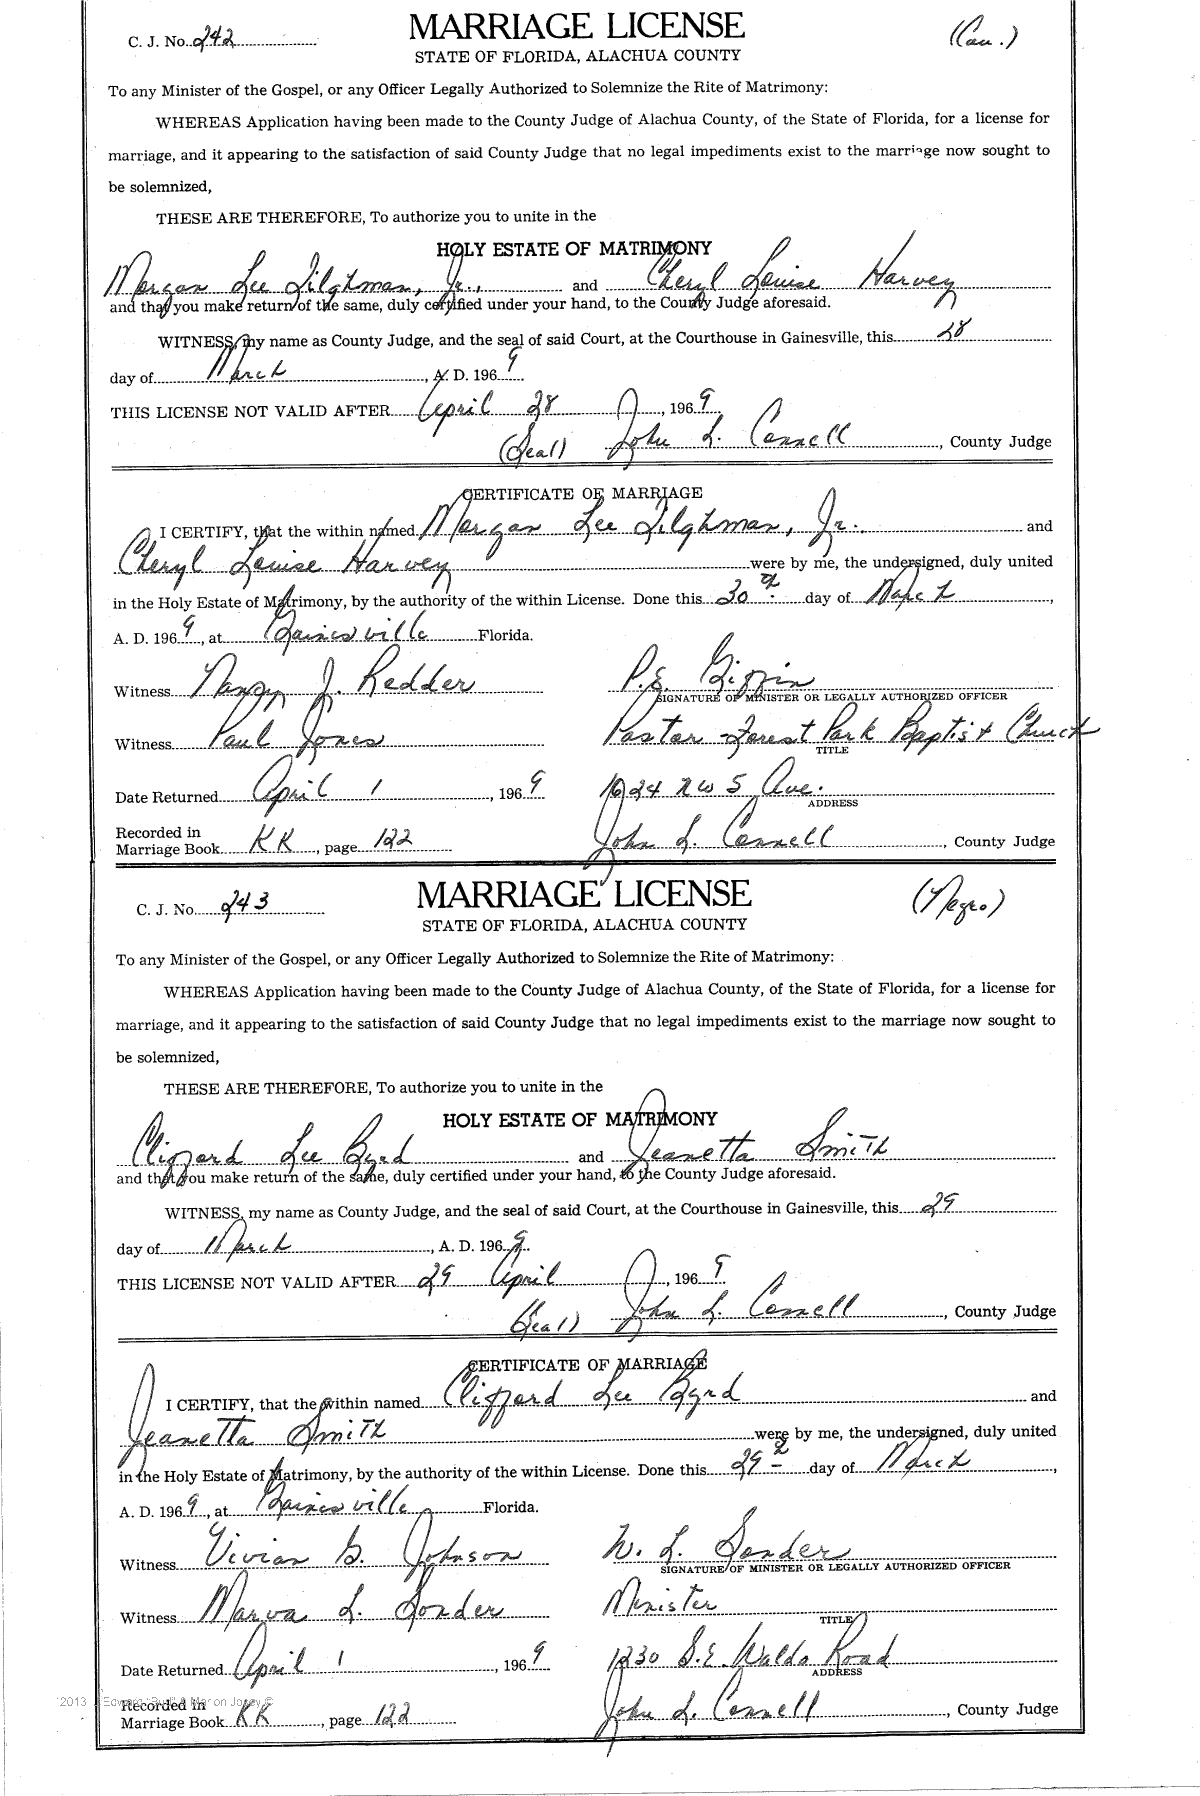 C. J. No. 242 MARRIAGE LICENSE (Cau.)
STATE OF FLORIDA, ALACHUA COUNTY
To any Minister of the Gospel, or any Officer Legally Authorized to Solemnize the Rite of Matrimony:
WHEREAS Application having been made to the County Judge of Alachua County, of the State of Florida, for a license for
marriage, and it appearing to the satisfaction of said County Judge that no legal impediments exist to the marriage now sought to
be solemnized,
THESE ARE THEREFORE, To authorize you to unite in the
HOLY ESTATE OF MATRIMONY
Morgan Lee Tilghman, Jr., and Cheryl Louise Harvey
and that you make return of the same, duly certified under your hand, to the County Judge aforesaid.
WITNESS, my name as County Judge, and the seal of said Court, at the Courthouse in Gainesville, this 28
day of March, A. D. 1969
THIS LICENSE NOT VALID AFTER April 28, 1969
(Seal) John L. Connell, County Judge
CERTIFICATE OF MARRIAGE
I CERTIFY, that the within named Morgan Lee Tilghman, Jr. and
Cheryl Louise Harvey were by me, the undersigned, duly united
in the Holy Estate of Matrimony, by the authority of the within License. Done this 30th day of March,
A. D. 1969, at Gainesville Florida.
Witness Nancy J. Redder P.E. Gippin
SIGNATURE OF MINISTER OR LEGALLY AUTHORIZED OFFICER
Witness Paul Jones Pastor - Forest Park Baptist Church
TITLE
Date Returned April 1, 1969 1024 NW 5 Ave.
ADDRESS
Recorded in
Marriage Book KK, page 122 John L. Connell, County Judge
C. J. No. 243 MARRIAGE LICENSE (Negro)
STATE OF FLORIDA, ALACHUA COUNTY
To any Minister of the Gospel, or any Officer Legally Authorized to Solemnize the Rite of Matrimony:
WHEREAS Application having been made to the County Judge of Alachua County, of the State of Florida, for a license for
marriage, and it appearing to the satisfaction of said County Judge that no legal impediments exist to the marriage now sought to
be solemnized,
THESE ARE THEREFORE, To authorize you to unite in the
HOLY ESTATE OF MATRIMONY
Clifford Lee Byrd and Jeanetta Smith
and that you make return of the same, duly certified under your hand, to the County Judge aforesaid.
WITNESS, my name as County Judge, and the seal of said Court, at the Courthouse in Gainesville, this 29
day of March, A. D. 1969.
THIS LICENSE NOT VALID AFTER 29 April, 1969
(Seal) John L. Connell, County Judge
CERTIFICATE OF MARRIAGE
I CERTIFY, that the within named Clifford Lee Byrd and
Jeanetta Smith were by me, the undersigned, duly united
in the Holy Estate of Matrimony, by the authority of the within License. Done this 29th day of March,
A. D. 1969, at Gainesville Florida.
Witness Vivian G. Johnson W. L. Sonder
SIGNATURE OF MINISTER OR LEGALLY AUTHORIZED OFFICER
Witness Marva L. Sonder Minister
TITLE
Date Returned April 1, 1969 1230 S.E. Waldo Road
ADDRESS
Recorded in
Marriage Book KK, page 122 John L. Connell, County Judge